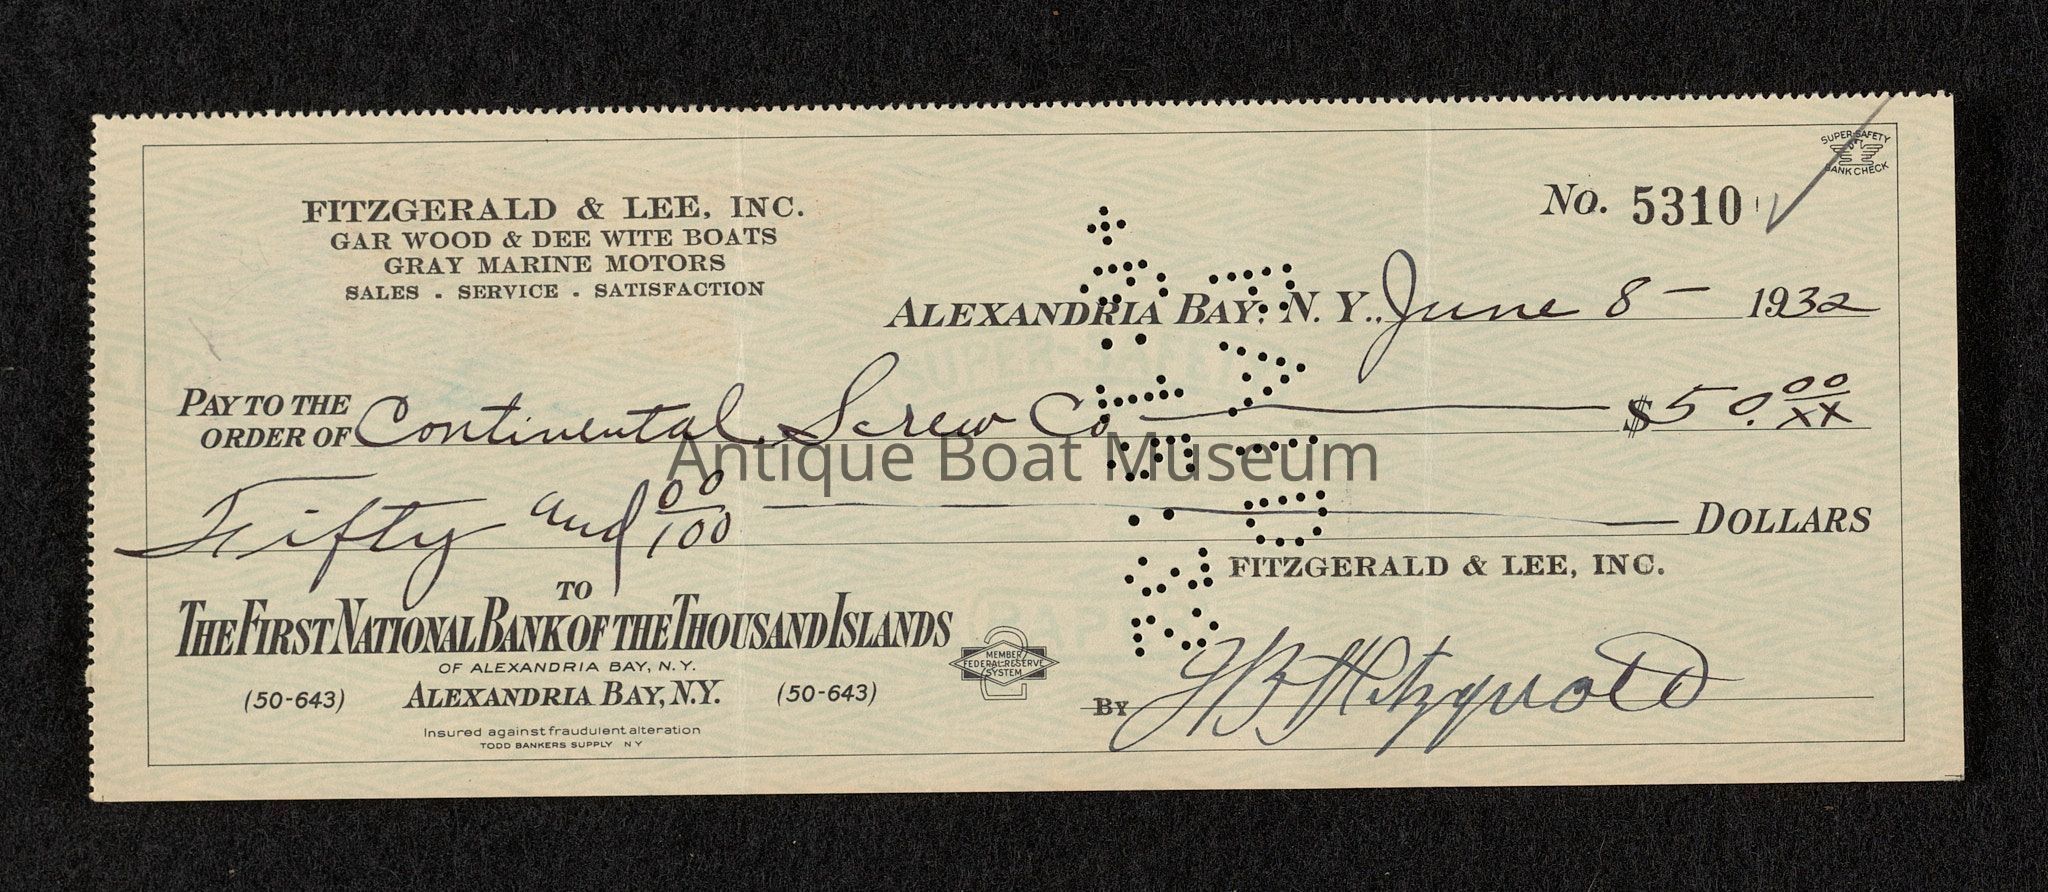 SUPER-SAFETY
BANK CHECK
No. 5310
FITZGERALD & LEE, INC.
GAR WOOD & DEE WITE BOATS
GRAY MARINE MOTORS
SALES . SERVICE . SATISFACTION
ALEXANDRIA BAY, N. Y., June 8 - 1932
PAY TO THE
ORDER OF Continental Screw Co $50.00/XX
Antique Boat Museum
Fifty and 00/100 DOLLARS
FITZGERALD & LEE, INC.
TO
THE FIRST NATIONAL BANK OF THE THOUSAND ISLANDS
OF ALEXANDRIA BAY, N.Y.
(50-643) ALEXANDRIA BAY, N.Y. (50-643)
MEMBER
FEDERAL RESERVE
SYSTEM
BY HB Fitzgerald
Insured against fraudulent alteration
TODD BANKERS SUPPLY NY